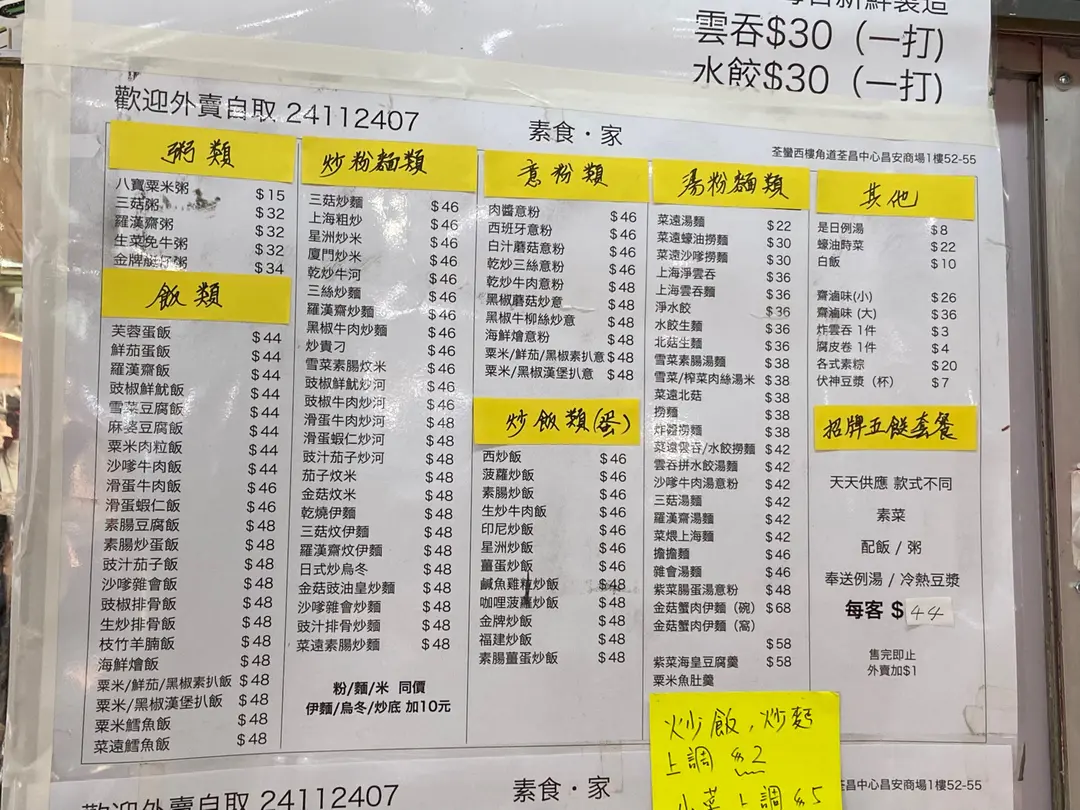 雲吞$30（一打)
水餃$30（一打)
歡迎外賣自取 24112407
素食・家
荃灣西樓角道荃昌中心昌安商場1樓52-55
粥類
八寶粟米粥 $15
三菇粥 $32
羅漢齋粥 $32
生菜免牛粥 $32
金牌艇仔粥 $34
飯類
芙蓉蛋飯 $44
鮮茄蛋飯 $44
羅漢齋飯 $44
豉椒鮮魷飯 $44
雪菜豆腐飯 $44
麻婆豆腐飯 $44
粟米肉粒飯 $44
沙嗲牛肉飯 $44
滑蛋牛肉飯 $46
滑蛋蝦仁飯 $46
素腸豆腐飯 $48
素腸炒蛋飯 $48
豉汁茄子飯 $48
沙嗲雜會飯 $48
豉椒排骨飯 $48
生炒排骨飯 $48
枝竹羊腩飯 $48
海鮮燴飯 $48
粟米/鮮茄/黑椒素扒飯 $48
粟米/黑椒漢堡扒飯 $48
粟米鱈魚飯 $48
菜遠鱈魚飯 $48
炒粉麵類
三菇炒麵 $46
上海粗炒 $46
星洲炒米 $46
廈門炒米 $46
乾炒牛河 $46
三絲炒麵 $46
羅漢齋炒麵 $46
黑椒牛肉炒麵 $46
炒貴刁 $46
雪菜素腸炆米 $46
豉椒鮮魷炒河 $46
豉椒牛肉炒河 $46
滑蛋牛肉炒河 $48
滑蛋蝦仁炒河 $48
豉汁茄子炒河 $48
茄子炆米 $48
金菇炆米 $48
乾燒伊麵 $48
三菇炆伊麵 $48
羅漢齋炆伊麵 $48
日式炒烏冬 $48
金菇豉油皇炒麵 $48
沙嗲雜會炒麵 $48
豉汁排骨炒麵 $48
菜遠素腸炒麵 $48
粉/麵/米 同價
伊麵/烏冬/炒底 加10元
意粉類
肉醬意粉 $46
西班牙意粉 $46
白汁蘑菇意粉 $46
乾炒三絲意粉 $46
乾炒牛肉意粉 $48
黑椒蘑菇炒意 $48
黑椒牛柳絲炒意 $48
海鮮燴意粉 $48
粟米/鮮茄/黑椒素扒意 $48
粟米/黑椒漢堡扒意 $48
炒飯類(蛋)
西炒飯 $46
菠蘿炒飯 $46
素腸炒飯 $46
生炒牛肉飯 $46
印尼炒飯 $46
星洲炒飯 $46
薑蛋炒飯 $46
鹹魚雞粒炒飯 $48
咖哩菠蘿炒飯 $48
金牌炒飯 $48
福建炒飯 $48
素腸薑蛋炒飯 $48
湯粉麵類
菜遠湯麵 $22
菜遠蠔油撈麵 $30
菜遠沙嗲撈麵 $30
上海淨雲吞 $36
上海雲吞麵 $36
淨水餃 $36
水餃生麵 $36
北菇生麵 $36
雪菜素腸湯麵 $38
雪菜/榨菜肉絲湯米 $38
菜遠北菇 $38
撈麵 $38
炸醬撈麵 $38
菜遠雲吞/水餃撈麵 $42
雲吞拼水餃湯麵 $42
沙嗲牛肉湯意粉 $42
三菇湯麵 $42
羅漢齋湯麵 $42
菜煨上海麵 $42
擔擔麵 $46
雜會湯麵 $46
紫菜腸蛋湯意粉 $48
金菇蟹肉伊麵（碗） $68
金菇蟹肉伊麵（窩）
$58
紫菜海皇豆腐羹 $58
粟米魚肚羹
其他
是日例湯 $8
蠔油時菜 $22
白飯 $10
齋滷味(小) $26
齋滷味 (大) $36
炸雲吞 1件 $3
腐皮卷 1件 $4
各式素粽 $20
伏神豆漿（杯） $7
招牌五餸套餐
天天供應 款式不同
素菜
配飯 / 粥
奉送例湯 / 冷熱豆漿
每客 $44
售完即止
外賣加$1
炒飯,炒麵
上調 $2
小菜上調 $5
歡迎外賣自取 24112407
素食・家
荃昌中心昌安商場1樓52-55